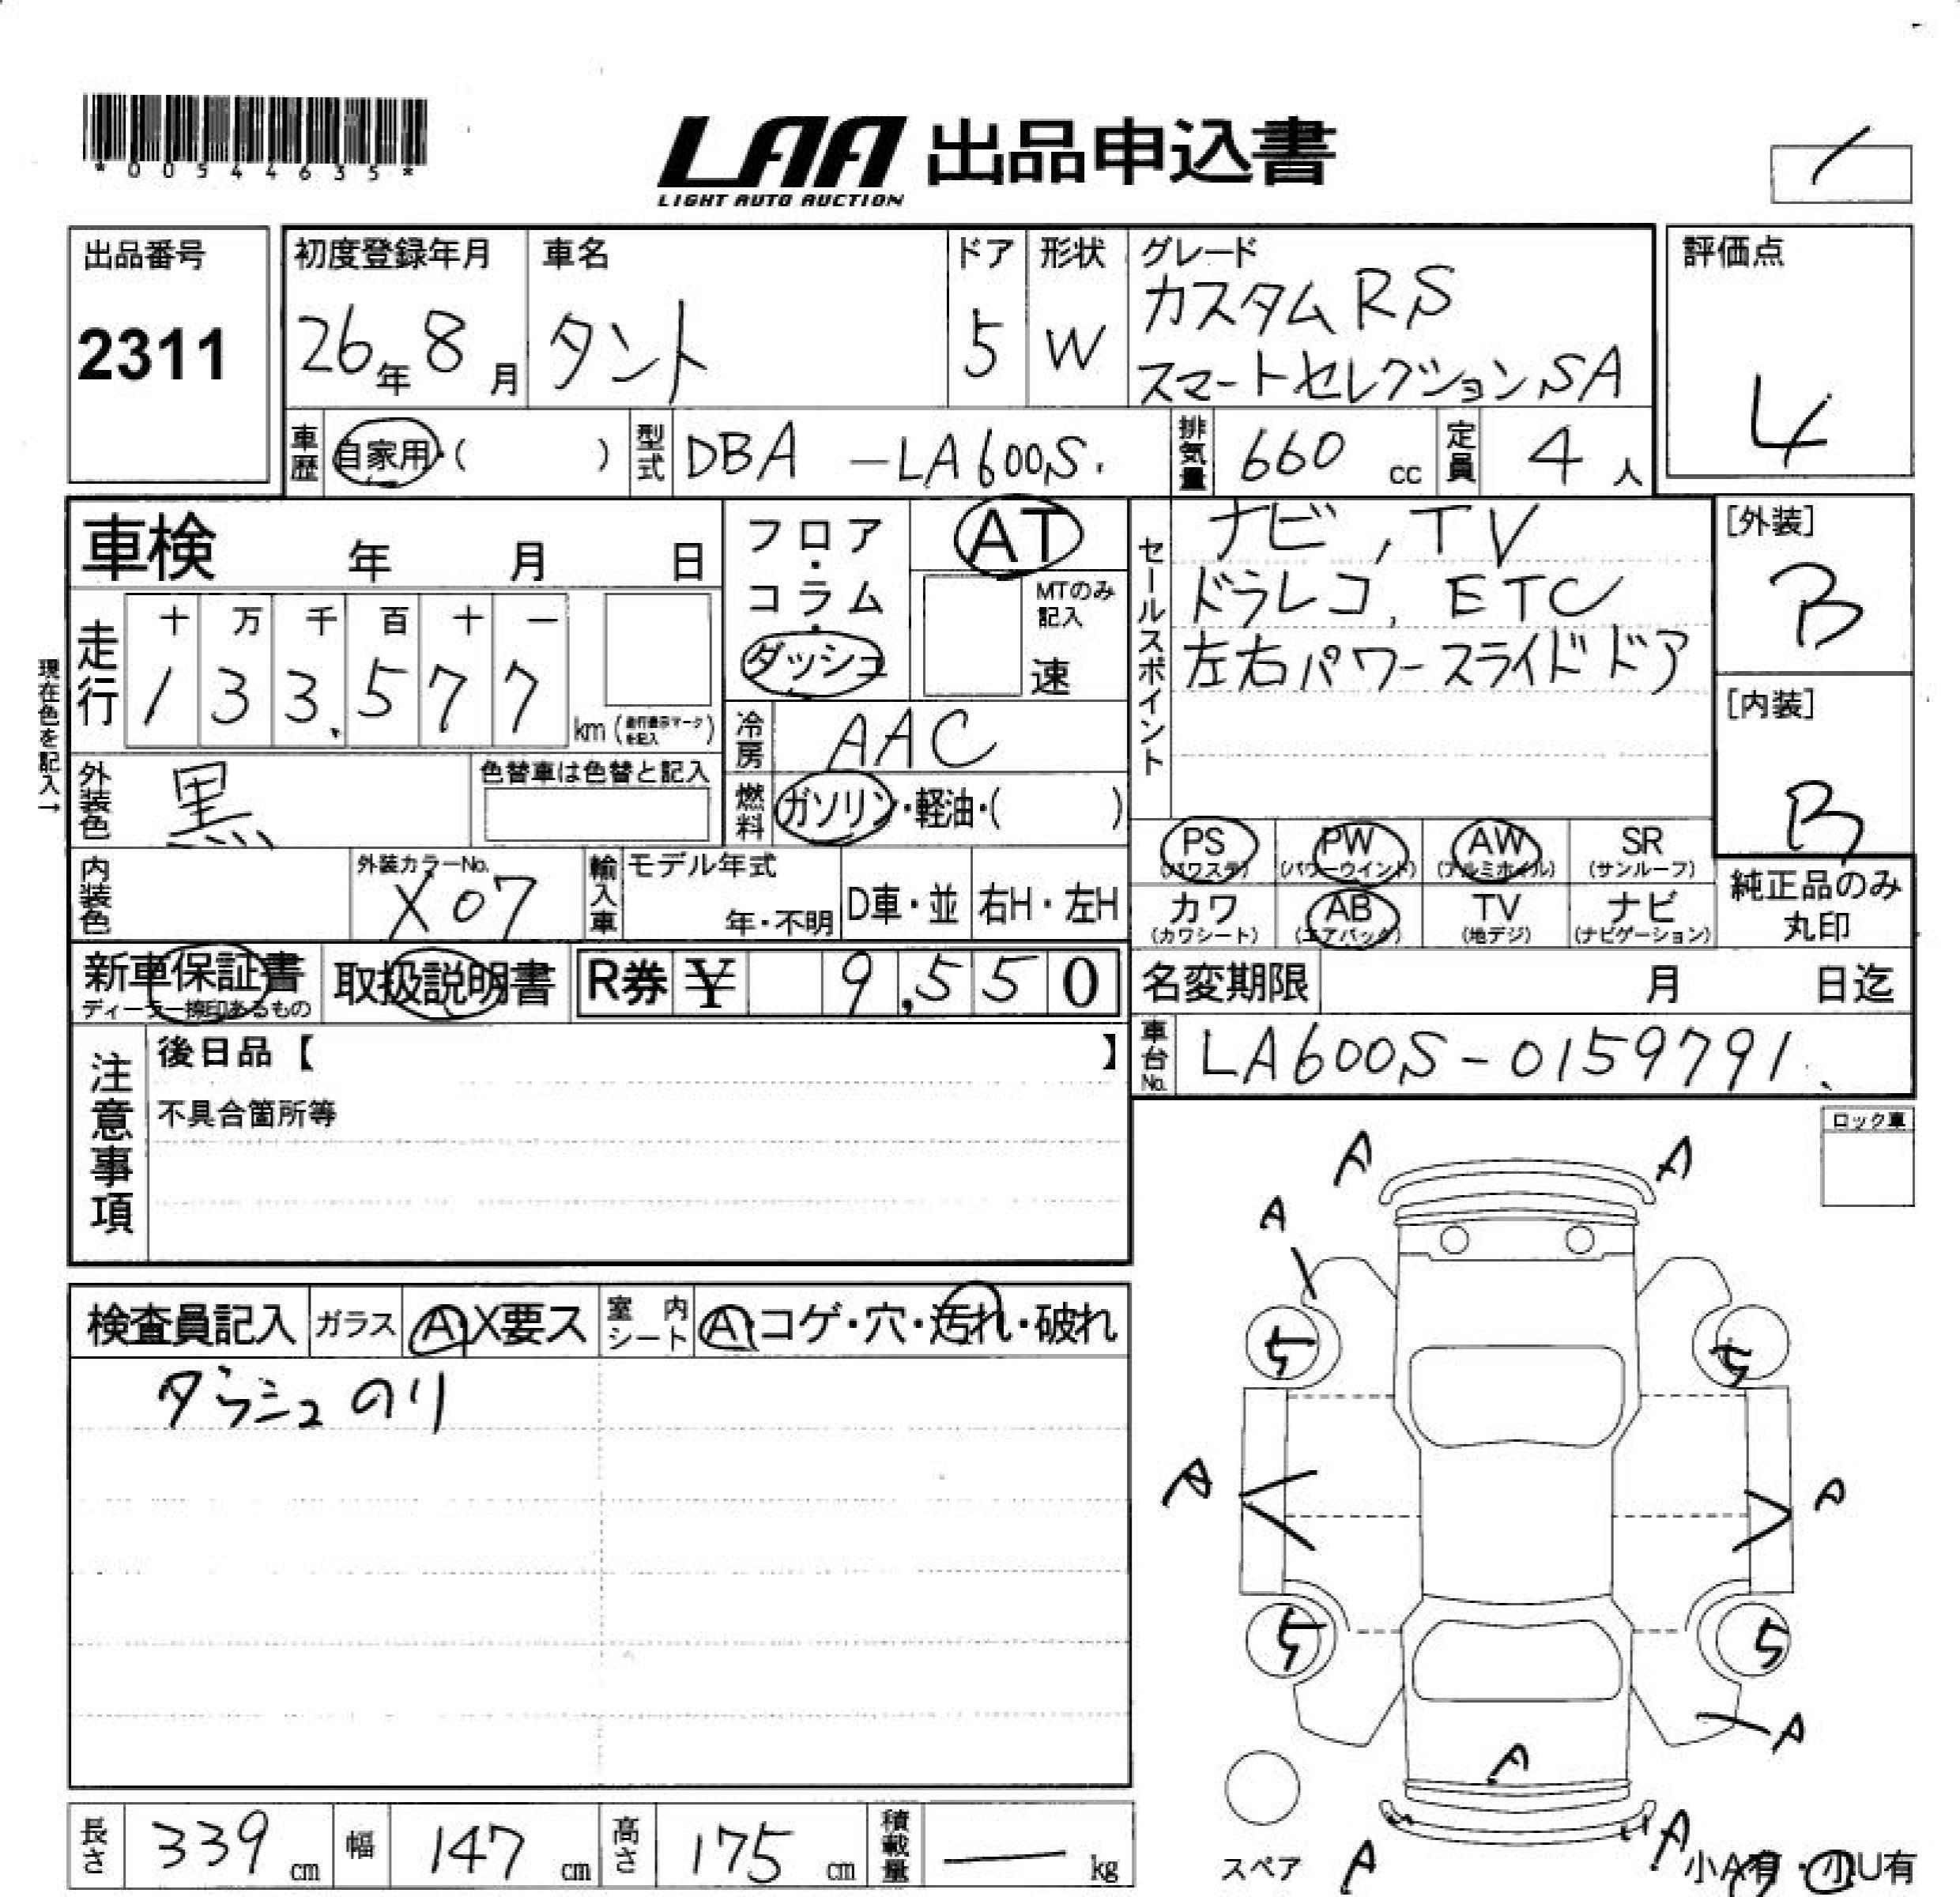 *00544635*
LAA 出品申込書
LIGHT AUTO AUCTION
出品番号
2311
初度登録年月
26年8月
車名
タント
ドア
5
形状
W
グレード
カスタムRS
スマートセレクションSA
評価点
4
車歴
自家用・( )
型式
DBA-LA600S.
排気量
660 cc
定員
4人
車検 年 月 日
フロア・コラム・ダッシュ
AT
MTのみ記入
速
セールスポイント
ナビ, TV
ドラレコ, ETC
左右パワースライドドア
[外装]
B
[内装]
B
現在色を記入→
走行
十 万 千 百 十 一
1 3 3. 5 7 7
km (走行表示マークを記入)
冷房
AAC
外装色
黒
色替車は色替と記入
燃料
ガソリン・軽油・( )
PS (パワステ)
PW (パワーウインド)
AW (アルミホイル)
SR (サンルーフ)
カワ (カワシート)
AB (エアバック)
TV (地デジ)
ナビ (ナビゲーション)
純正品のみ丸印
内装色
外装カラーNo.
X07
輸入車
モデル年式
年・不明
D車・並
右H・左H
新車保証書
ディーラー捺印あるもの
取扱説明書
R券 ¥ 9,550
名変期限 月 日迄
注意事項
後日品【 】
不具合箇所等
車台No.
LA600S-0159791.
ロック車
検査員記入
ガラス
A・X要ス
室内シート
A・コゲ・穴・汚れ・破れ
ダッシュのり
A A
A
5 5
A A
5 5
A
A
A A
スペア
小A有・小U有
長さ 339 cm
幅 147 cm
高さ 175 cm
積載量 — kg